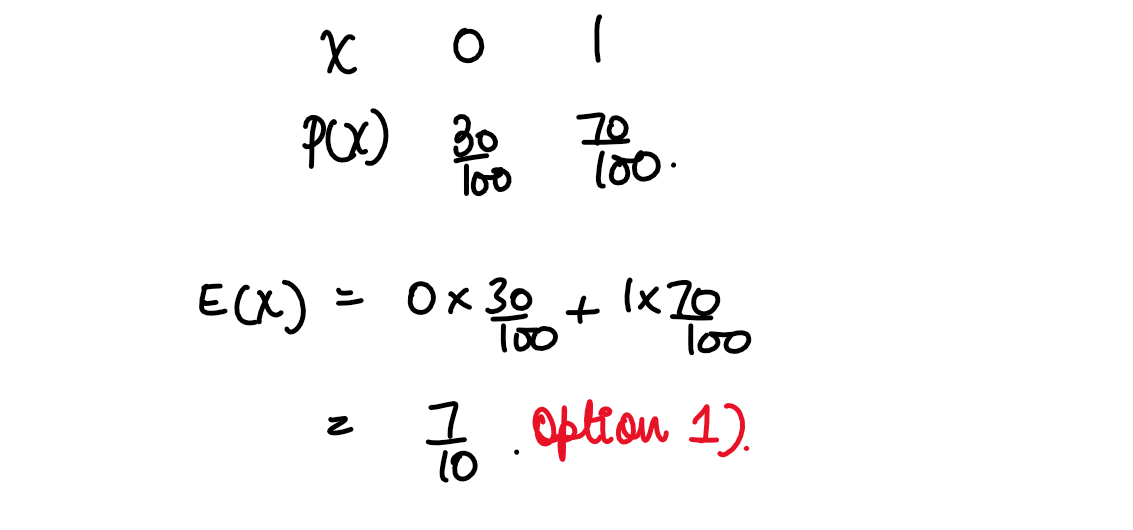 X 0 1
P(X) 30/100 70/100.
E(X) = 0 × 30/100 + 1 × 70/100
= 7/10 . Option 1).